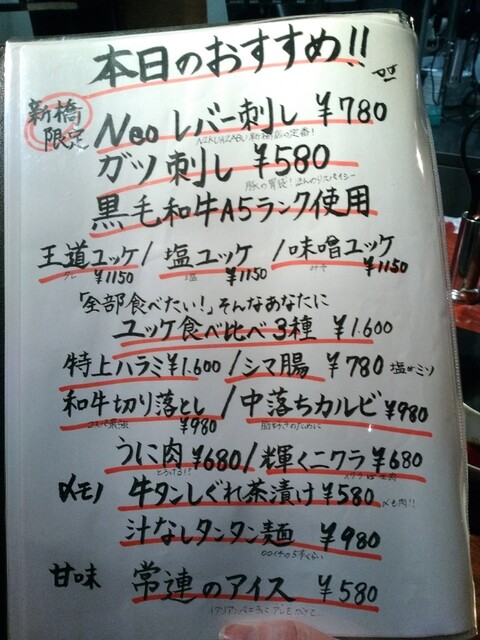 本日のおすすめ!!
新橋限定 Neo レバー刺し ¥780
ガツ刺し ¥580
豚の胃袋!ほんのりスパイシー
黒毛和牛A5ランク使用
王道ユッケ / 塩ユッケ / 味噌ユッケ
タレ ¥1150 塩 ¥1150 みそ ¥1150
「全部食べたい!」そんなあなたに
ユッケ食べ比べ3種 ¥1.600
特上ハラミ ¥1.600 / シマ腸 ¥780 塩orミソ
和牛切り落とし / 中落ちカルビ ¥980
コスパ最強 ¥980 脂好きのために
うに肉 ¥680 / 輝くニクラ ¥680
とろける!!
〆モノ 牛タンしぐれ茶漬け ¥580 〆も肉!!
汁なしタンタン麺 ¥980
甘味 常連のアイス ¥580